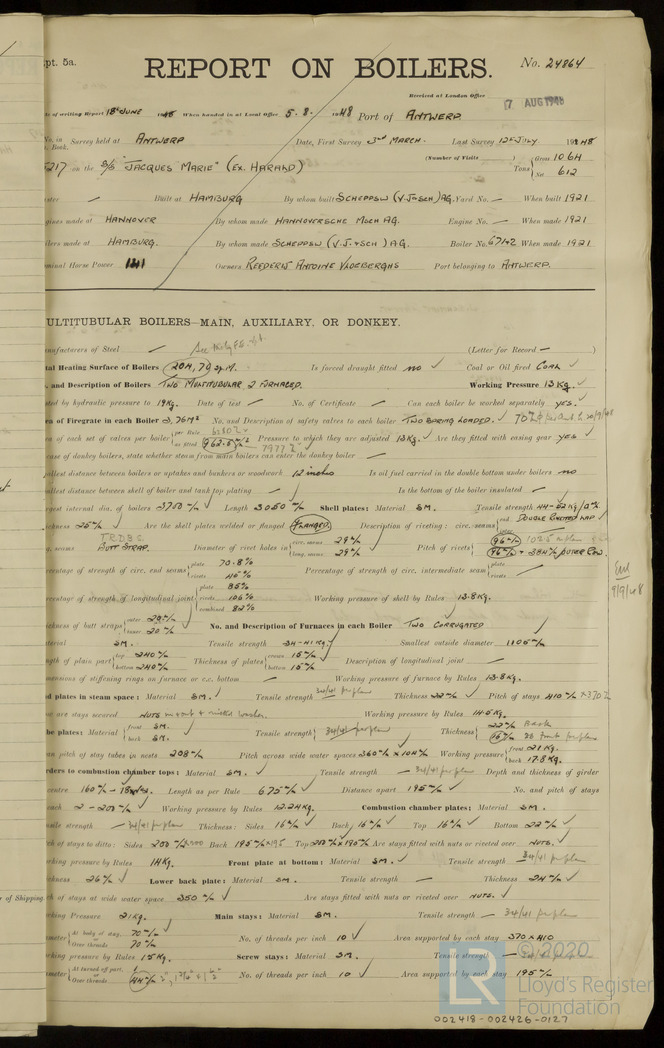 pt. 5a.
REPORT ON BOILERS.
No. 24864
Received at London Office
17 AUG 1948
of writing Report 18th JUNE 1948 When handed in at Local Office 5.8.1948 Port of ANTWERP.
No. in Book. Survey held at ANTWERP Date, First Survey 3rd MARCH. Last Survey 12th JULY 1948
(Number of Visits ) Gross 1064
217 on the S/S "JACQUES MARIE" (EX. HARALD) Tons Net 612
Built at HAMBURG By whom built SCHEPPSW (V.J=SCH) AG. Yard No. — When built 1921
gines made at HANNOVER By whom made HANNOVERSCHE MSCH AG. Engine No. — When made 1921
ilers made at HAMBURG. By whom made SCHEPPSW (V.J=SCH) AG. Boiler No. 67142 When made 1921
minal Horse Power 141 Owners REEDERIJ ANTOINE VLOEBERGHS Port belonging to ANTWERP.
ULTITUBULAR BOILERS—MAIN, AUXILIARY, OR DONKEY.
nufacturers of Steel — (Letter for Record — )
tal Heating Surface of Boilers 204,70 sq.M. Is forced draught fitted NO ✓ Coal or Oil fired COAL ✓
and Description of Boilers TWO MULTITUBULAR 2 FURNACED. Working Pressure 13 Kg. ✓
ted by hydraulic pressure to 19 Kg. Date of test — No. of Certificate — Can each boiler be worked separately YES. ✓
ea of Firegrate in each Boiler 3,76 M² No. and Description of safety valves to each boiler TWO SPRING LOADED. ✓
ea of each set of valves per boiler per Rule as fitted Pressure to which they are adjusted 13 Kg. ✓ Are they fitted with easing gear YES ✓
case of donkey boilers, state whether steam from main boilers can enter the donkey boiler —
allest distance between boilers or uptakes and bunkers or woodwork 12 inches Is oil fuel carried in the double bottom under boilers NO
allest distance between shell of boiler and tank top plating — Is the bottom of the boiler insulated —
gest internal dia. of boilers 3700 m/m Length 3050 m/m Shell plates: Material SM. Tensile strength 44-52 Kg/□m/m
ickness 25 m/m ✓ Are the shell plates welded or flanged FLANGED. Description of riveting: circ. seams end DOUBLE RIVETED LAP
T.R.D.B.S.
seams BUTT STRAP. Diameter of rivet holes in circ. seams 29 m/m long. seams 29 m/m Pitch of rivets
centage of strength of circ. end seams plate 70.8% rivets 40% Percentage of strength of circ. intermediate seam plate rivets —
centage of strength of longitudinal joint plate 85% rivets 106% combined 82% Working pressure of shell by Rules 13.8 Kg.
ickness of butt straps outer 20 m/m inner 20 m/m No. and Description of Furnaces in each Boiler TWO CORRUGATED
terial SM. Tensile strength 34-41 Kg. Smallest outside diameter 1105 m/m
ngth of plain part top 240 m/m bottom 240 m/m Thickness of plates crown 15 m/m bottom 15 m/m Description of longitudinal joint —
mensions of stiffening rings on furnace or c.c. bottom — Working pressure of furnace by Rules 13.8 Kg.
d plates in steam space: Material SM. ✓ Tensile strength 34/41 per plan Thickness 22 m/m ✓ Pitch of stays 410 m/m × 370
w are stays secured Working pressure by Rules 14.5 Kg.
be plates: Material front SM. back SM. Tensile strength 34/41 per plan Thickness 22 m/m back
an pitch of stay tubes in nests 208 m/m Pitch across wide water spaces 360 m/m × 104 m/m Working pressure front 21 Kg. back 17.8 Kg.
rders to combustion chamber tops: Material SM. ✓ Tensile strength — 34/41 per plan Depth and thickness of girder
centre Length as per Rule 675 m/m ✓ Distance apart 195 m/m ✓ No. and pitch of stays
each 2 - 200 m/m ✓ Working pressure by Rules 12.24 Kg. Combustion chamber plates: Material SM.
nsile strength — 34/41 per plan Thickness: Sides 16 m/m ✓ Back 16 m/m ✓ Top 16 m/m ✓ Bottom 22 m/m ✓
ch of stays to ditto: Sides 200 m/m × 200 Back 195 m/m × 195 Top 200 m/m × 195 m/m Are stays fitted with nuts or riveted over NUTS.
rking pressure by Rules 14 Kg. Front plate at bottom: Material SM. ✓ Tensile strength 34/41 per plan
ckness 26 m/m ✓ Lower back plate: Material SM. Tensile strength — Thickness 24 m/m ✓
ch of stays at wide water space 350 m/m ✓ Are stays fitted with nuts or riveted over NUTS. ✓
rking Pressure 21 Kg. Main stays: Material SM. Tensile strength — 34/41 per plan
ameter At body of stay, 70 m/m Over threads 70 m/m No. of threads per inch 10 ✓ Area supported by each stay 370 × 410
rking pressure by Rules 15 Kg. Screw stays: Material SM. Tensile strength — 34/41 per plan
ameter At turned off part, Over threads No. of threads per inch 10 ✓ Area supported by each stay 195 m/m ✓
r of Shipping
9/9/48
LR
© 2020
Lloyd's Register
Foundation
002418-002426-0127